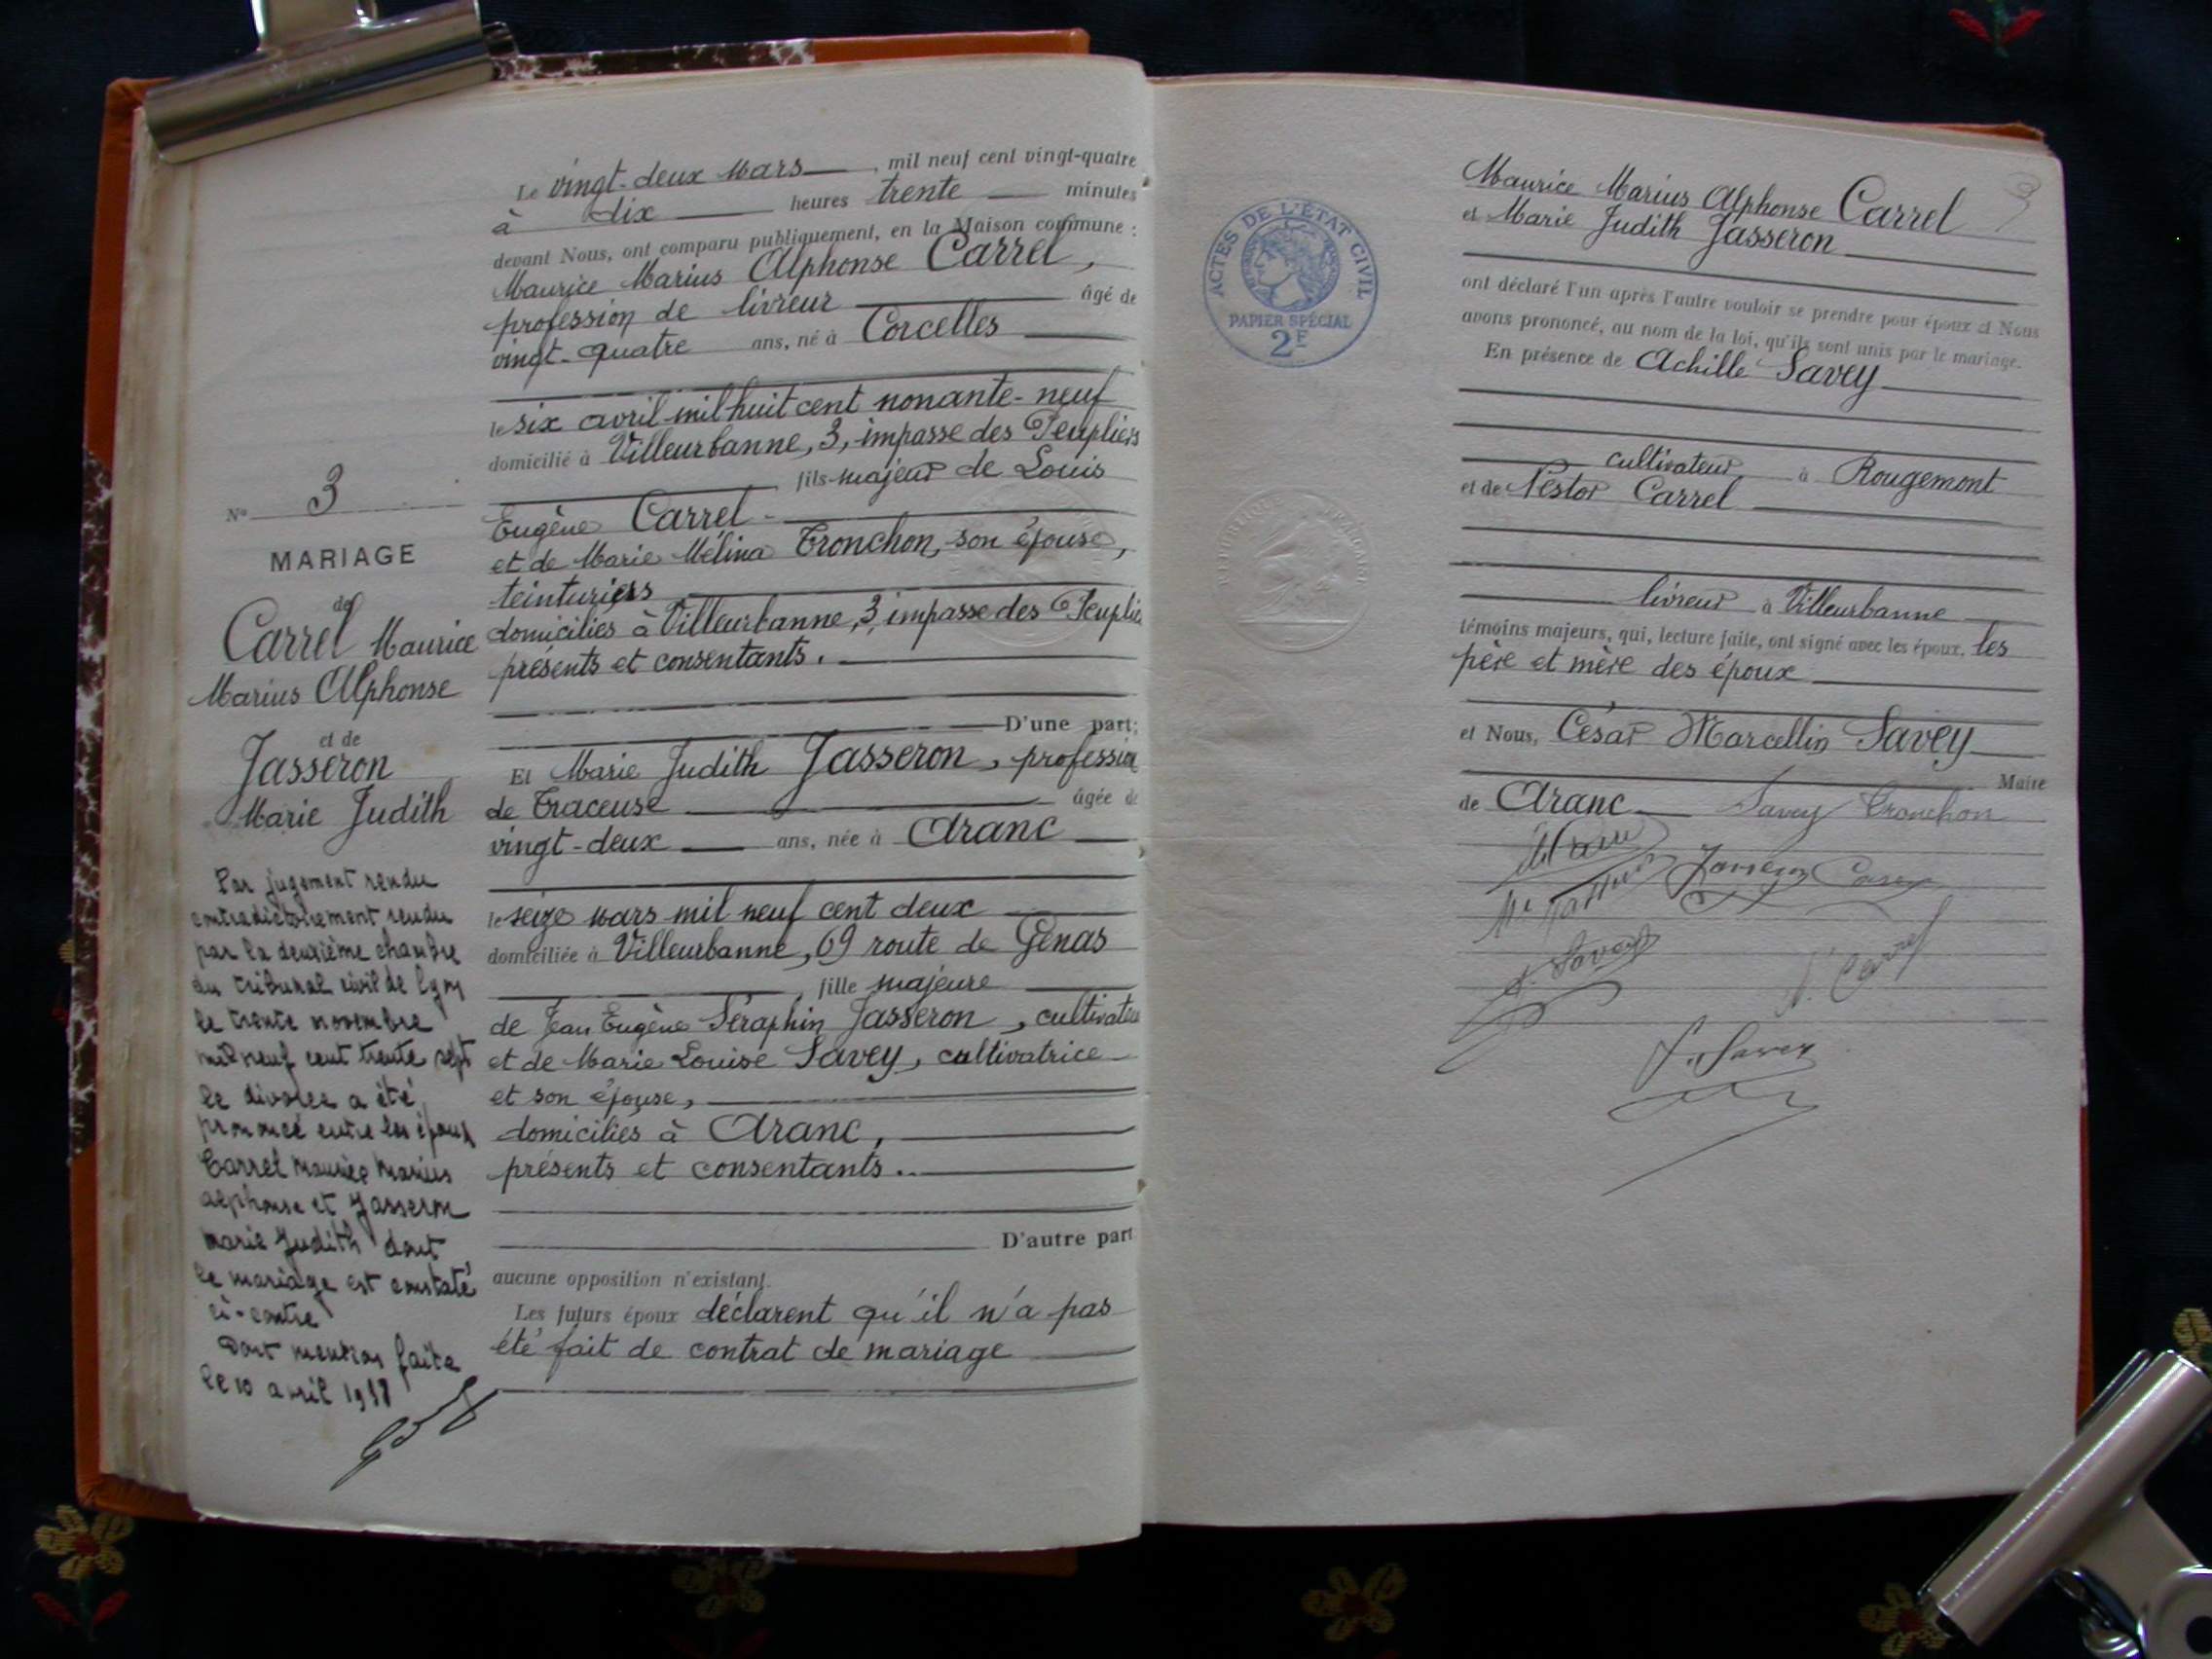 Le vingt-deux mars, mil neuf cent vingt-quatre
à dix heures trente minutes
devant Nous, ont comparu publiquement, en la Maison commune :
Maurice Marius Alphonse Carrel,
profession de livreur âgé de
vingt-quatre ans, né à Corcelles
le six avril mil huit cent nonante-neuf
domicilié à Villeurbanne, 3, impasse des Peupliers
fils majeur de Louis
Eugène Carrel
et de Marie Mélina Tronchon, son épouse,
teinturiers
domiciliés à Villeurbanne, 3, impasse des Peuplie
présents et consentants.
D'une part;
Et Marie Judith Jasseron, profession
de Traceuse âgée de
vingt-deux ans, née à Aranc
le seize mars mil neuf cent deux
domiciliée à Villeurbanne, 69 route de Genas
fille majeure
de Jean Eugène Séraphin Jasseron, cultivateu
et de Marie Louise Savey, cultivatrice
et son épouse,
domiciliés à Aranc,
présents et consentants..
D'autre part
aucune opposition n'existant.
Les futurs époux déclarent qu'il n'a pas
été fait de contrat de mariage
No 3
MARIAGE
de
Carrel Maurice
Marius Alphonse
et de
Jasseron
Marie Judith
Par jugement rendu
contradictoirement rendu
par la deuxième chambre
du tribunal civil de Lyon
le trente novembre
mil neuf cent trente sept
le divorce a été
prononcé entre les époux
Carrel Maurice Marius
Alphonse et Jasseron
Marie Judith dont
le mariage est constaté
ci-contre
Dont mention faite
le 10 avril
ACTES DE L'ÉTAT CIVIL
PAPIER SPÉCIAL
2F
RÉPUBLIQUE FRANÇAISE
Maurice Marius Alphonse Carrel
et Marie Judith Jasseron
ont déclaré l'un après l'autre vouloir se prendre pour époux et Nous
avons prononcé, au nom de la loi, qu'ils sont unis par le mariage.
En présence de Achille Savey
cultivateur à Rougemont
et de Nestor Carrel
livreur à Villeurbanne
témoins majeurs, qui, lecture faite, ont signé avec les époux, les
père et mère des époux
et Nous, César Marcellin Savey
Maire
de Aranc
Savey Tronchon
A. Savey
N. Carrel
Savey